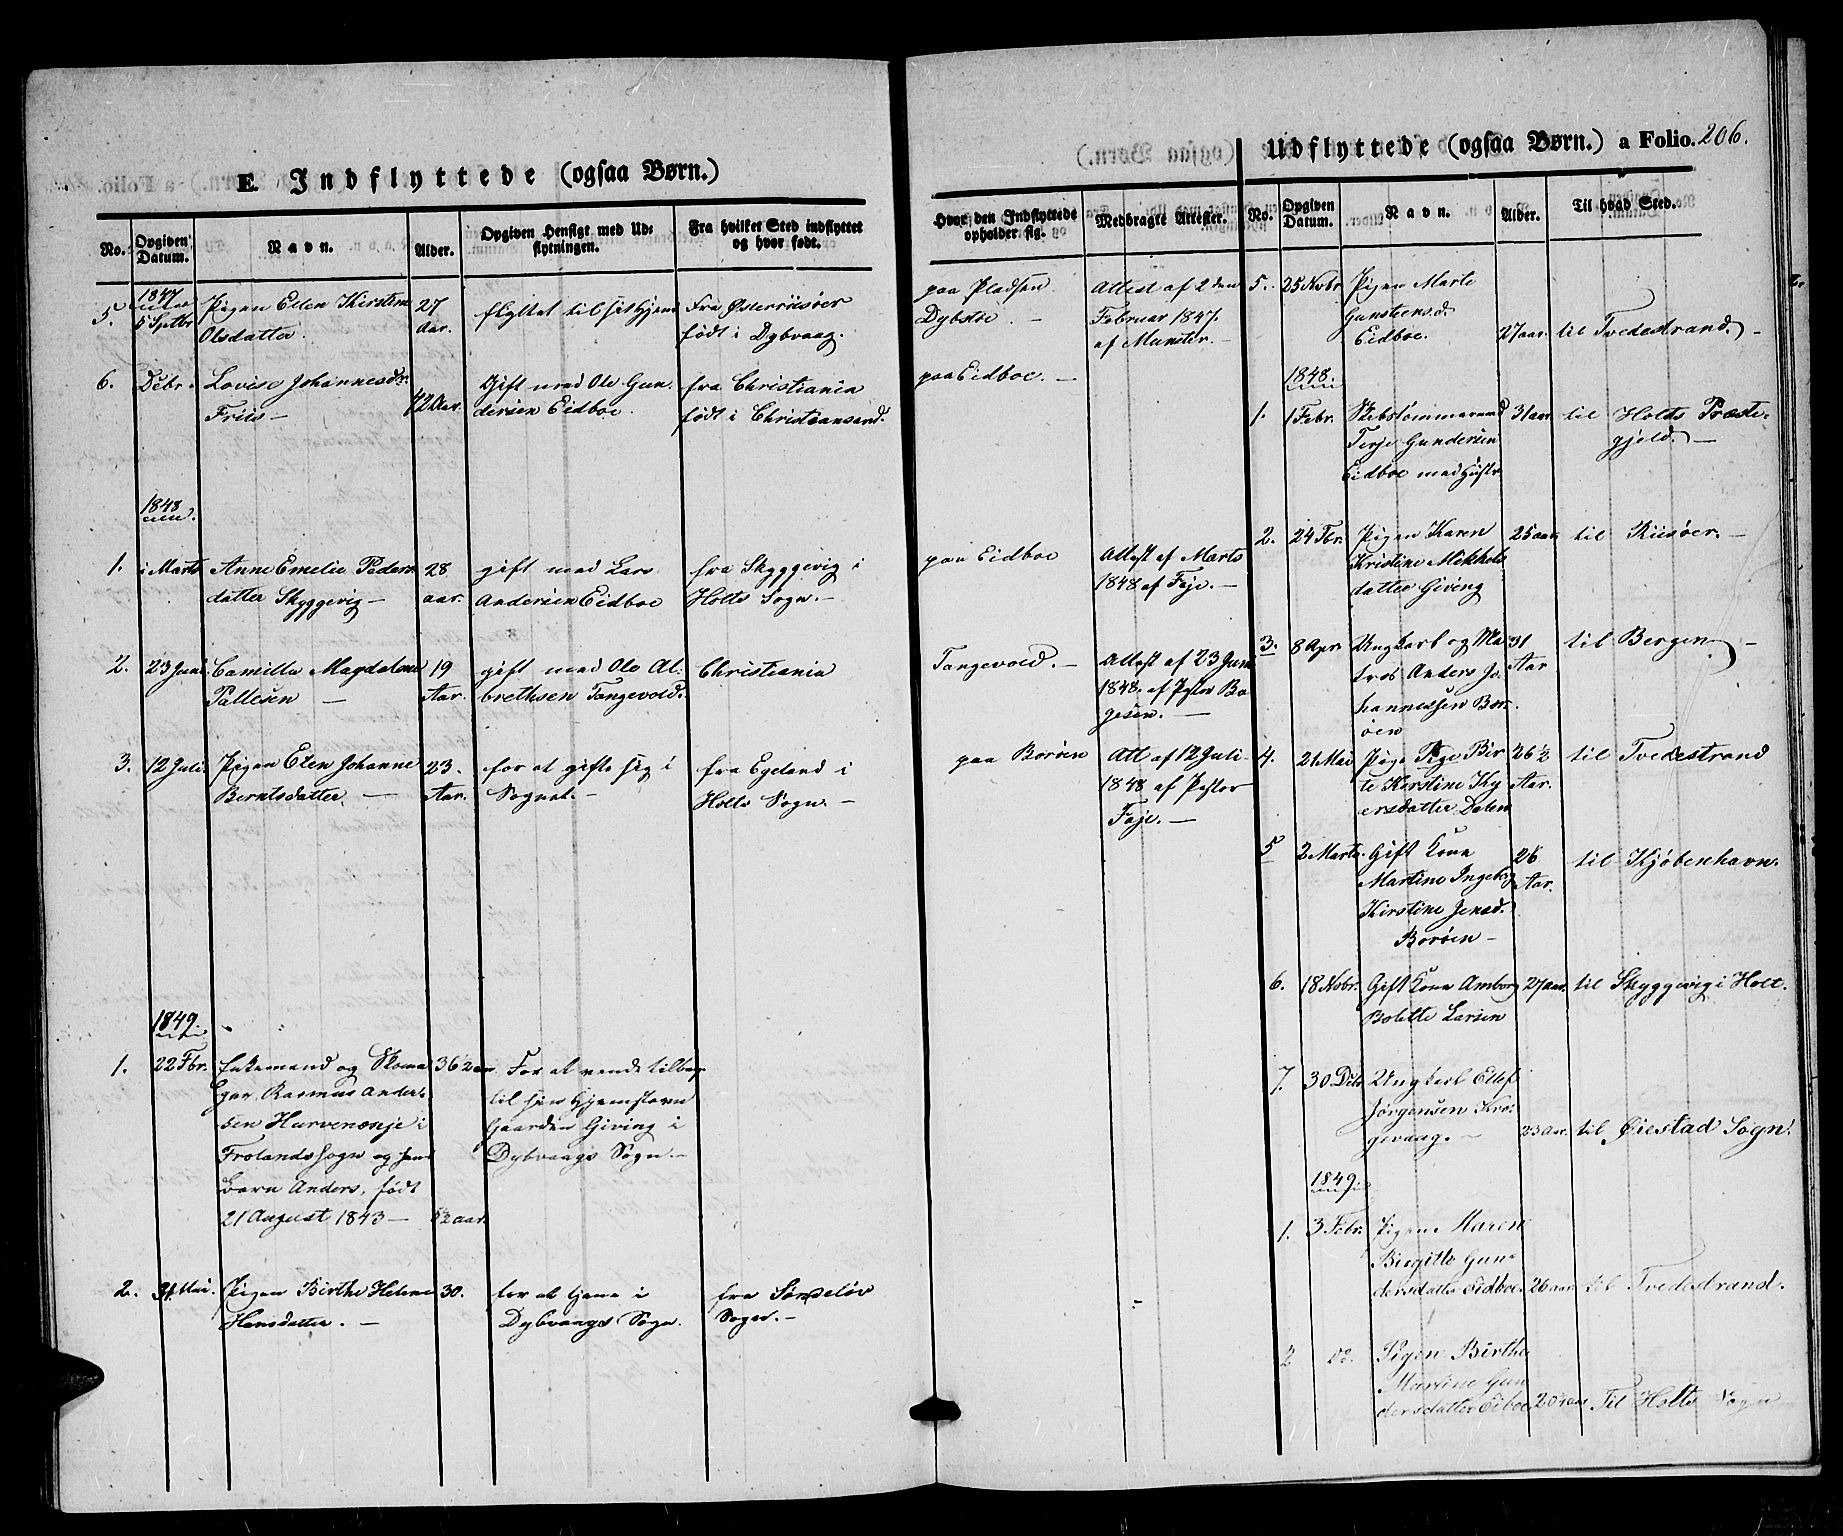 E. Indflyttede (ogsaa Børn.)
No.
Opgiven Datum.
Navn.
Alder.
Opgiven Hensigt med Udflytningen.
Fra hvilket Sted indflyttet og hvor født.
Hvor den Indflyttede opholder sig.
Medbragte Attester.
1847
5. 5 Septbr Pigen Elen Kirstine 27 flyttet til sit Hjem Fra Østerriisøer paa Pladsen Attest af 2den
Olsdatter. Aar. født i Dybvaag. Dybsbo. — Februar 1847.
af Munster. —
6. Debr. Lovise Johannesdr. 42 Aar. Gift med Ole Gun- fra Christiania paa Eidboe. —
Friis — dersen Eidboe. født i Christiansand.
1848
1. i Marts Anne Emelie Peders- 28 gift med Lars fra Skyggevig i paa Eidboe Attest af Marts
datter Skyggevig — aar. Andersen Eidboe Holts Sogn. — 1848 af Faje. —
2. 23 Juni Camilla Magdalene 19 gift med Ole Al- Christiania Tangevold. — Attest af 23 Juni
Pallesen — Aar. brethsen Tangevold. 1848. af Pstor Bo-
gesen. —
3. 12 Juli. Pigen Elen Johanne 23 for at gifte sig i fra Egeland i paa Borøen Att. af 12 Juli
Berntsdatter. — Aar. Sognet. — Holts Sogn. — 1848 af Pastor
Faje. —
1849.
1. 22 Fbr. Enkemand og Skoma- 36½ aar For at vende tilbage
ger Rasmus Ander- til sin Hjemstavn
sen Hurvenæsje i Gaarden Giving i
Frolands Sogn og hans Dybvaags Sogn. —
Barn Anders, født
21 August 1843 — 5½ aar.
2. 31 Mai. Pigen Birthe Helene 30. for at tjene i fra Søndeløv
Hansdatter. — Dybvaags Sogn. Sogn. —
Udflyttede (ogsaa Børn.) a Folio. 206.
No.
Opgiven Datum.
Navn.
Alder.
Til hvad Sted.
5. 25 Novbr Pigen Marte
Gunstensd.
Eidboe. 27 aar. til Tvedestrand. —
1848.
1. 1 Febr. Skibstømmermand 31 aar til Holts Præste-
Terje Gundersen gjeld. —
Eidboe med Hustr
2. 24 Fbr. Pigen Karen 25 aar. til Riisøer. —
Kristine Mikkels
datter Giving
3. 8 Apr. Ungkarl og Ma- 31 til Bergen —
tros Anders Jo- Aar
hannessen Bor-
øen
4. 21 Mai Pige Bir- 26½ til Tvedestrand
te Kirstine Thy Aar.
ersdatter Dalen
5 2 Marts. Gift Kone 26 til Kjøbenhavn.
Martine Ingeborg Aar.
Kirstine Jensd.
Borøen —
6. 18 Novbr. Gift Kone Amborg 27 aar. til Skyggevig i Holt.
Bolette Larsen
7. 30 Debr Ungkarl Ellef
Jørgensen Kro-
gevaag. — 23 Aar. til Øiestad Sogn.
1849.
1. 3 Febr. Pigen Maren
Birgitte Gun-
dersdatter Eidboe 26 aar til Tvedestrand.
2 Do. Pigen Birthe
Martine Gun
dersdatter Eiboe 20 aar Til Holts Sogn